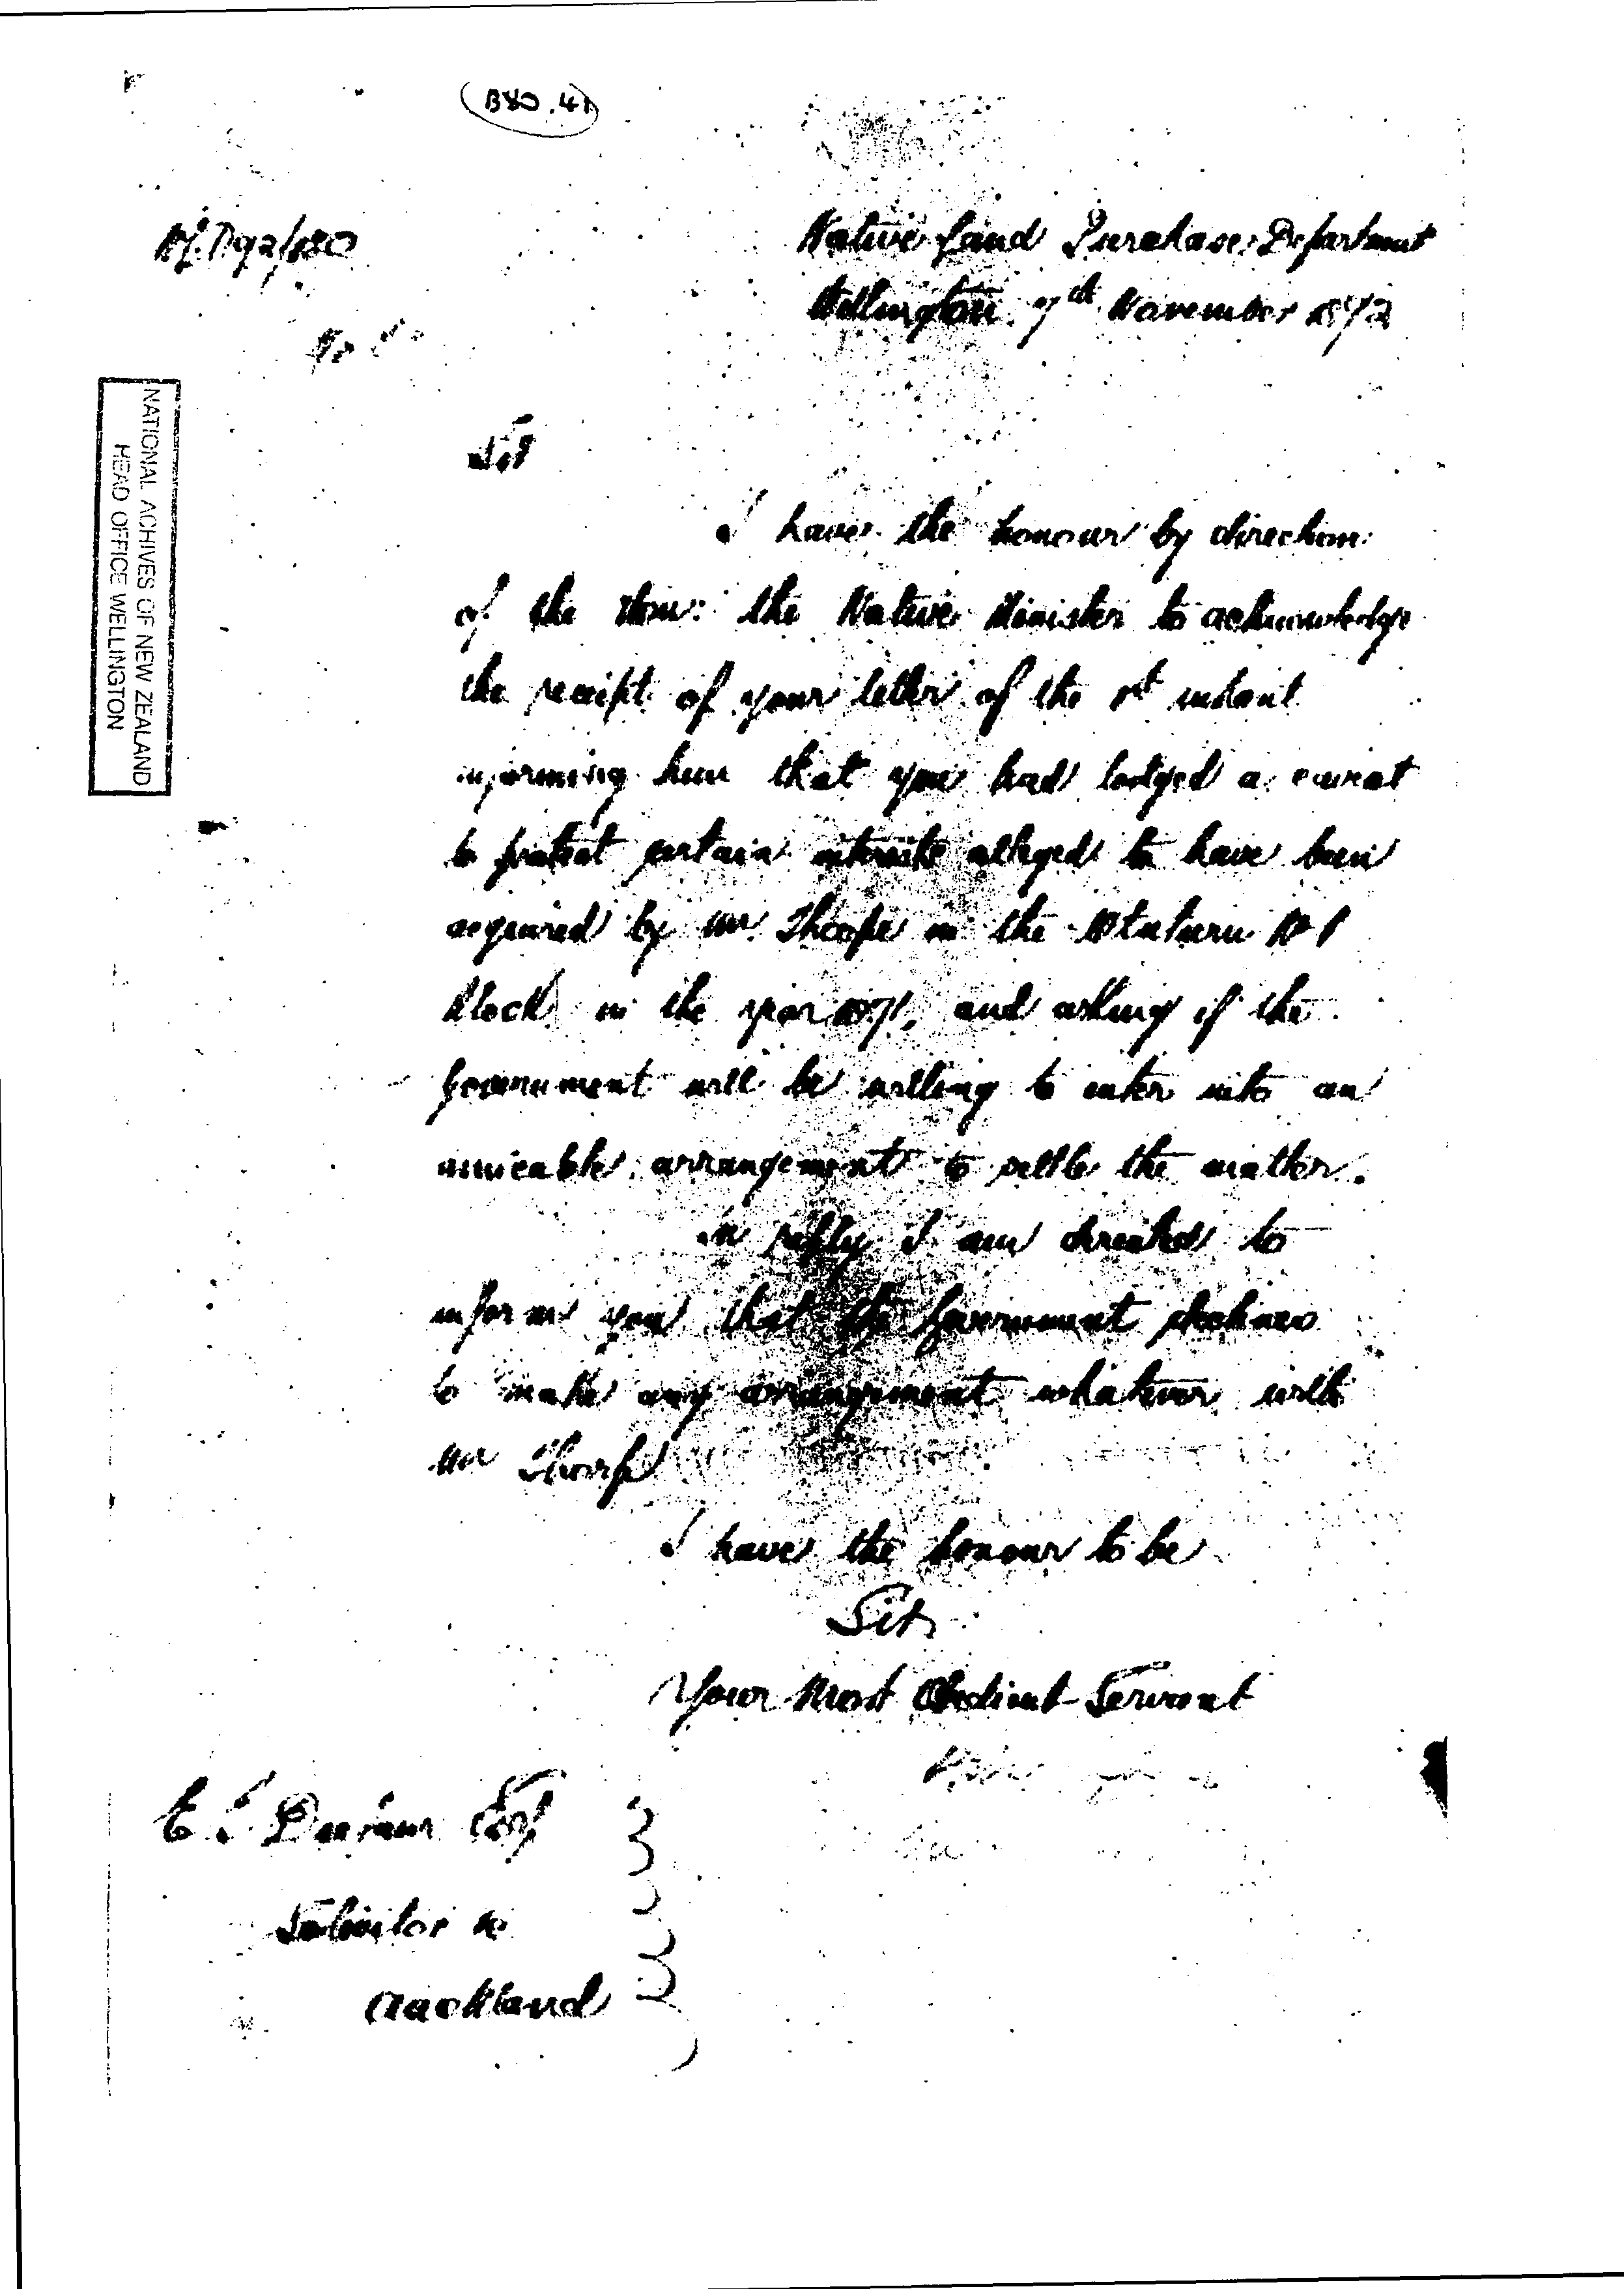 B80.41
Native Land Purchase Department
Wellington 7th November 1892
NATIONAL ACHIVES OF NEW ZEALAND
HEAD OFFICE WELLINGTON
Sir
I have the honour by direction
of the Hon: the Native Minister to acknowledge
the receipt of your letter of the 1st instant
informing him that you had lodged a caveat
to protect certain interests alleged to have been
acquired by Mr. Thorpe in the
Block in the year and asking if the
Government will be willing to enter into an
amicable arrangement to settle the matter.
In reply I am directed to
inform you that the Government declines
to make any arrangement whatever with
Mr Thorp
I have the honour to be
Sir
Your Most Obedient Servant
Esq
Solicitor
Auckland